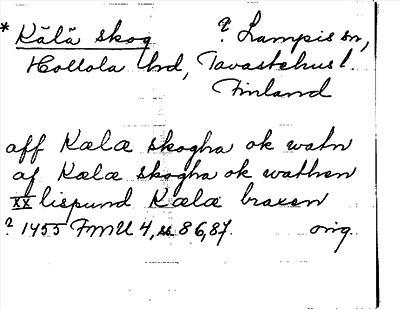 * Kälä skog ? Lampis sn,
Hollola hd, Tavastehus l.
Finland
aff Kælæ skogha ok watn
af Kælæ skogha ok wathen
XX lispund Kælæ braxen
? 1455 FMU 4, s. 86, 87. orig.